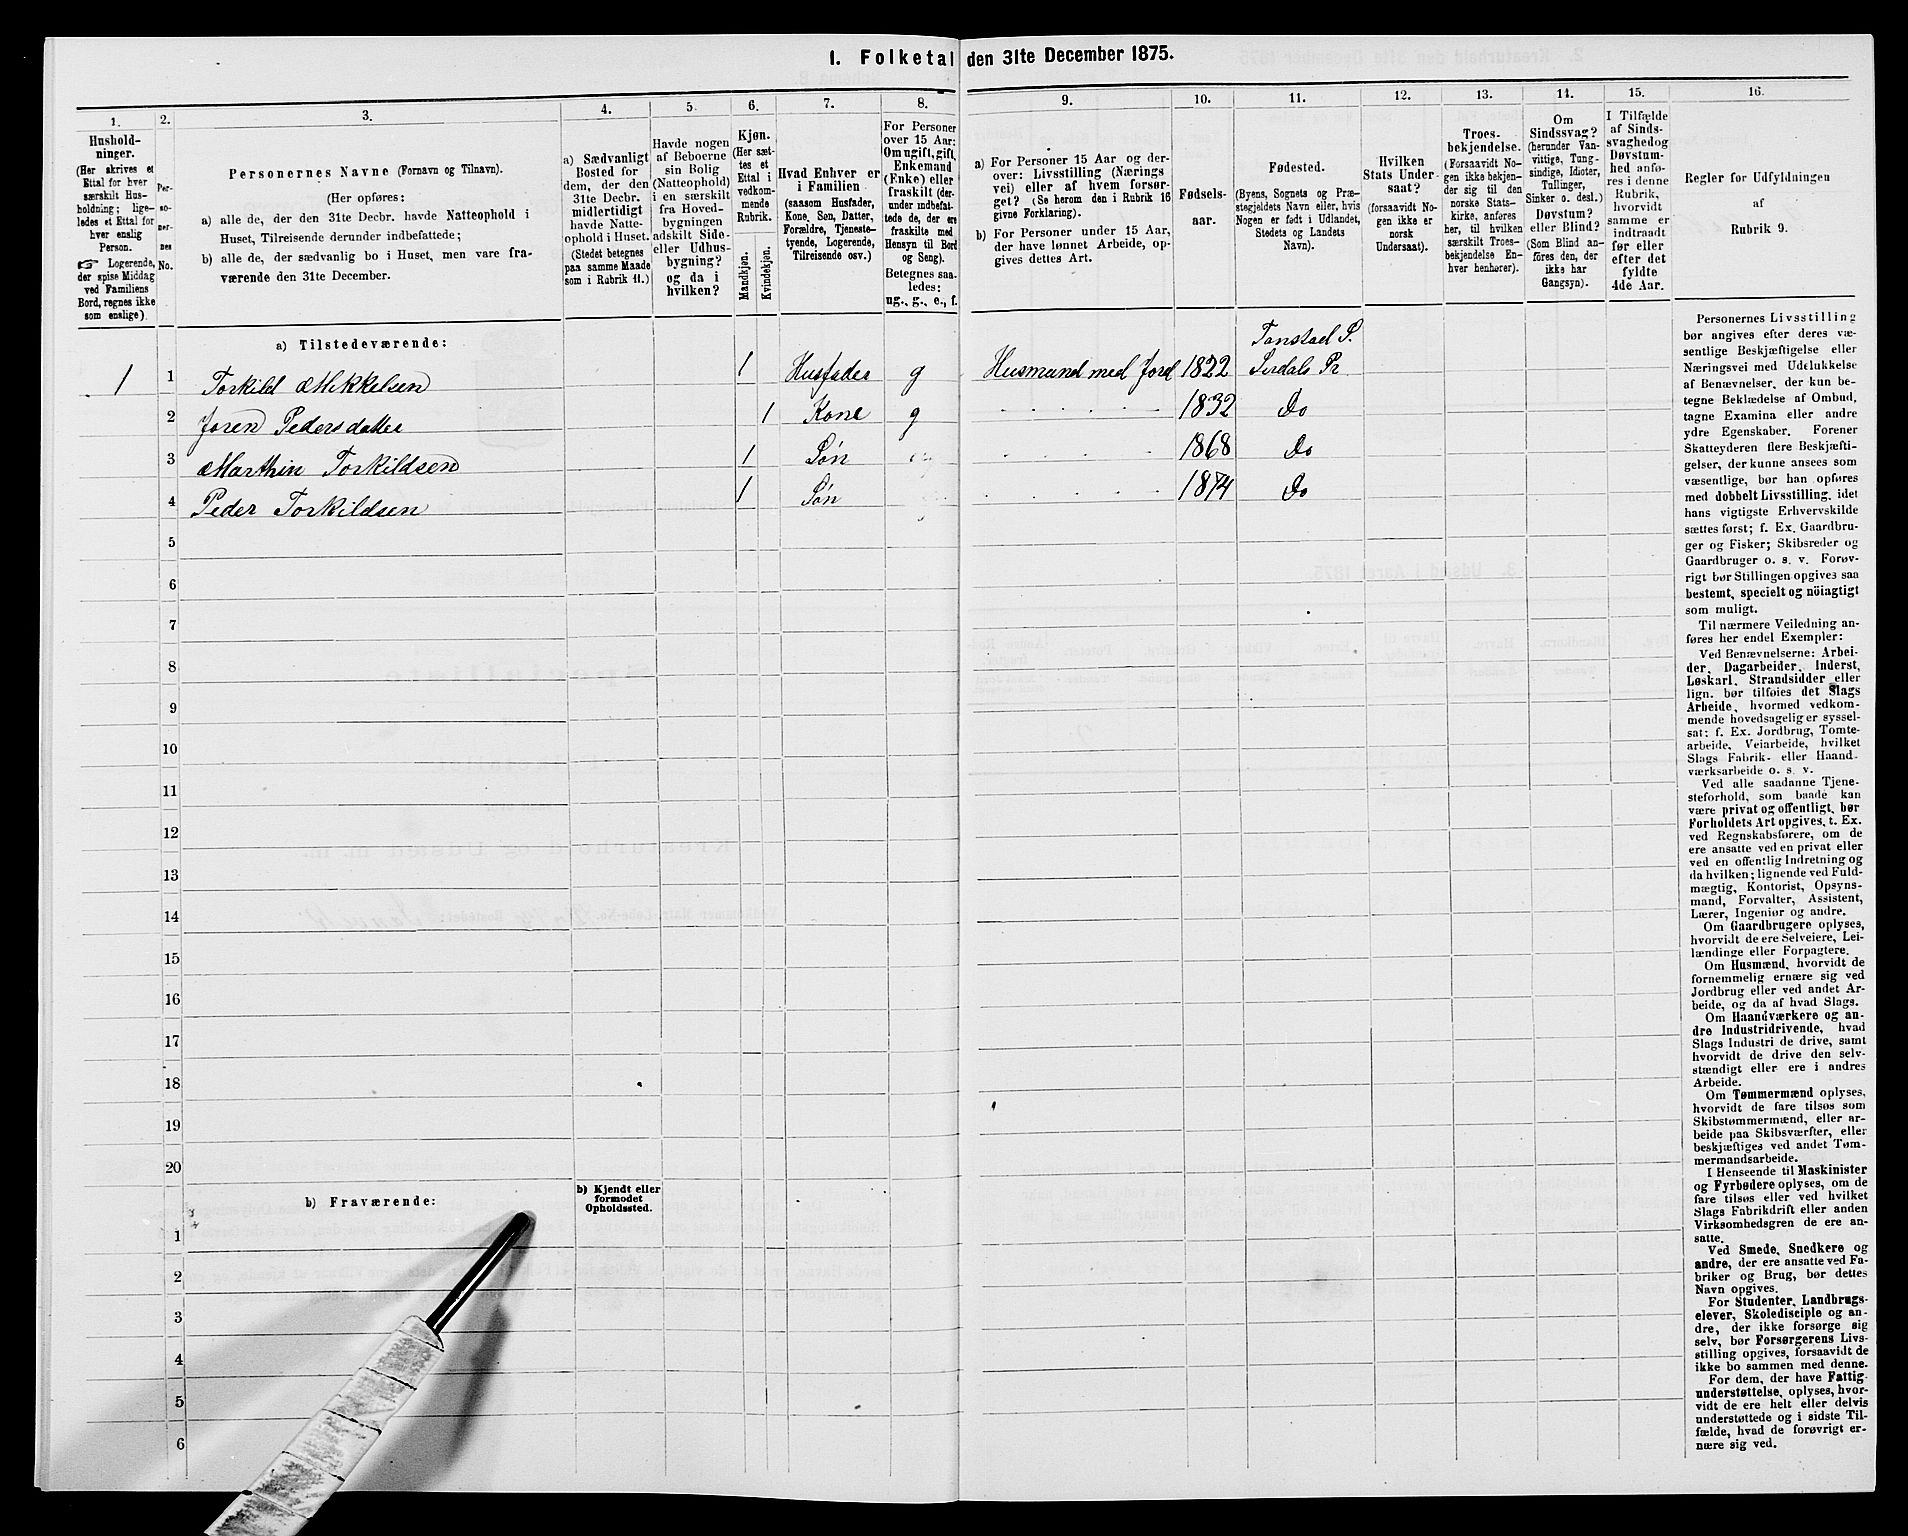 1. Folketal den 31te December 1875.
1. 2. 3. 4. 5. 6. 7. 8. 9. 10. 11. 12. 13. 14. 15. 16.
Hushold-
ninger.
(Her skrives et
Ettal for hver
særskilt Hus-
holdning; lige-
ledes et Ettal for
hver enslig
Person.
☞ Logerende,
der spise Middag
ved Familiens
Bord, regnes ikke
som enslige).
Per-
so-
ner-
nes
No.
Personernes Navne (Fornavn og Tilnavn).
(Her opføres:
a) alle de, der den 31te Decbr. havde Natteophold i
Huset, Tilreisende derunder indbefattede;
b) alle de, der sædvanlig bo i Huset, men vare fra-
værende den 31te December.
a) Sædvanligt
Bosted for
dem, der den
31te Decbr.
midlertidigt
havde Natte-
ophold i Huset.
(Stedet betegnes
paa samme Maade
som i Rubrik 11.)
Havde nogen
af Beboerne
sin Bolig
(Natteophold)
i en særskilt
fra Hoved-
bygningen
adskilt Side-
eller Udhus-
bygning?
og da i
hvilken?
Kjøn.
(Her sæt-
tes et
Ettal i
vedkom-
mende
Rubrik.
Mandkjøn.
Kvindekjøn.
Hvad Enhver er
i Familien
(saasom Husfader,
Kone, Søn, Datter,
Forældre, Tjeneste-
tyende, Logerende,
Tilreisende osv.)
For Personer
over 15 Aar:
Om ugift, gift,
Enkemand
(Enke) eller
fraskilt (der-
under indbefat-
tede de, der ere
fraskilte med
Hensyn til Bord
og Seng).
Betegnes saa-
ledes:
ug., g., e., f.
a) For Personer 15 Aar og der-
over: Livsstilling (Nærings
vei) eller af hvem forsør-
get? (Se herom den i Rubrik 16
givne Forklaring).
b) For Personer under 15 Aar,
der have lønnet Arbeide, op-
gives dettes Art.
Fødsels-
aar.
Fødested.
(Byens, Sognets og Præ-
stegjeldets Navn eller, hvis
Nogen er født i Udlandet,
Stedets og Landets
Navn).
Hvilken
Stats Under-
saat?
(forsaavidt No-
gen ikke er
norsk
Undersaat).
Troes-
bekjendelse.
(Forsaavidt No-
gen ikke bekjen-
der sig til den
norske Stats-
kirke, anføres
her, til hvilken
særskilt Troes-
bekjendelse En-
hver henhører).
Om
Sindssvag?
(herunder Van-
vittige, Tung-
sindige, Idioter,
Tullinger,
Sinker o. desl.)
Døvstum?
eller Blind?
(Som Blind an-
føres den, der
ikke har
Gangsyn).
I Tilfælde
af Sinds-
svaghed og
Døvstum-
hed anfø-
res i denne
Rubrik,
hvorvidt
samme er
indtraadt
før eller
efter det
fyldte
4de Aar.
Regler for Udfyldningen
af
Rubrik 9.
a) Tilstedeværende:
Tonstad S.
1 1 Torkild Mikkelsen 1 Husfader g Husmand med Jord 1822 Sirdals Pr
2 Joren Pedersdatter 1 Kone g 1832 Do
3 Marthin Torkildsen 1 Søn 1868 Do
4 Peder Torkildsen 1 Søn 1874 Do
5
6
7
8
9
10
11
12
13
14
15
16
17
18
19
20
b) Fraværende:
b) Kjendt eller
formodet
Opholdssted.
1
2
3
4
5
6
Personernes Livsstilling
bør angives efter deres væ-
sentlige Beskjæftigelse eller
Næringsvei med Udelukkelse
af Benævnelser, der kun be-
tegne Beklædelse af Ombud,
tagne Examina eller andre
ydre Egenskaber. Forener
Skatteyderen flere Beskjæfti-
gelser, der kunne ansees som
væsentlige, bør han opføres
med dobbelt Livsstilling, idet
hans vigtigste Erhvervskilde
sættes først; f. Ex. Gaardbru-
ger og Fisker; Skibsreder og
Gaardbruger o. s. v. Forøv-
rigt bør Stillingen opgives saa
bestemt, specielt og nöiagtigt
som muligt.
Til nærmere Veiledning an-
føres her endel Exempler:
Ved Benævnelserne: Arbei-
der, Dagarbeider, Inderst,
Løskarl, Strandsidder eller
lign. bør tilføies det Slags
Arbeide, hvormed vedkom-
mende hovedsagelig er syssel-
sat: f. Ex. Jordbrug, Tomte-
arbeide, Veiarbeide, hvilket
Slags Fabrik- eller Haand-
værksarbeide o. s. v.
Ved alle saadanne Tjene-
steforhold, som baade kan
være privat og offentligt, bør
Forholdets Art opgives, t. Ex.
ved Regnskabsførere, om de
ere ansatte ved en privat eller
ved en offentlig Indretning og
da hvilken; lignende ved Fuld-
mægtig, Kontorist, Opsyns-
mand, Forvalter, Assistent,
Lærer, Ingeniør og andre.
Om Gaardbrugere oplyses,
hvorvidt de ere Selveiere, Lei-
lændinge eller Forpagtere.
Om Husmænd, hvorvidt de
fornemmelig ernære sig ved
Jordbrug eller ved andet Ar-
beide, og da af hvad Slags.
Om Haandværkere og an-
dre Industridrivende, hvad
Slags Industri de drive, samt
hvorvidt de drive den selv-
stændigt eller ere i andres
Arbeide.
Om Tømmermænd oplyses,
hvorvidt de fare tilsøs som
Skibstømmermænd, eller ar-
beide paa Skibsværfter, eller
beskjæftiges ved andet Tøm-
mermandsarbeide.
I Henseende til Maskinister
og Fyrbødere oplyses, om de
fare tilsøs eller ved hvilket
Slags Fabrikdrift eller anden
Virksomhedsgren de ere an-
satte.
Ved Smede, Snedkere og
andre, der ere ansatte ved Fa-
briker og Brug, bør dettes
Navn opgives.
For Studenter, Landbrugs-
elever, Skoledisciple og an-
dre, der ikke forsørge sig
selv, bør Forsørgerens Livs-
stilling opgives, forsaavidt de
ikke bo sammen med denne.
For dem, der have Fattig-
understøttelse, oplyses, hvor-
vidt de ere helt eller delvis
understøttede og i sidste Til-
fælde, hvad de forøvrigt er-
nære sig ved.